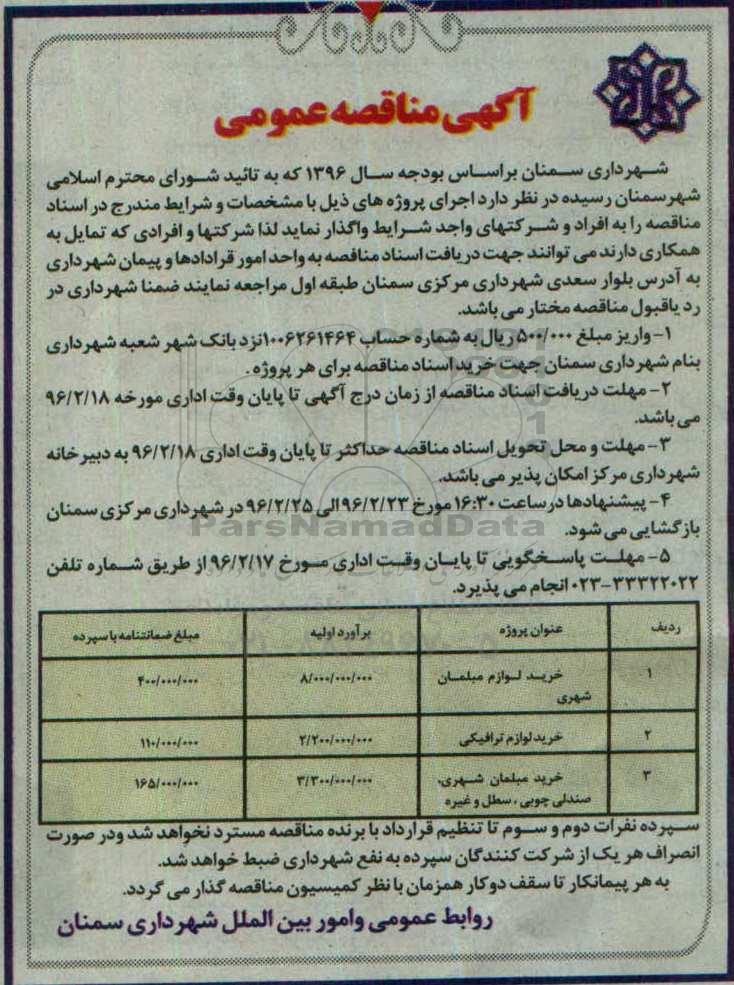 آگهی مناقصه عمومی
شهرداری سمنان براساس بودجه سال ۱۳۹۶ که به تائید شورای محترم اسلامی
شهرسمنان رسیده در نظر دارد اجرای پروژه های ذیل با مشخصات و شرایط مندرج در اسناد
مناقصه را به افراد و شرکتهای واجد شرایط واگذار نماید لذا شرکتها و افرادی که تمایل به
همکاری دارند می توانند جهت دریافت اسناد مناقصه به واحد امور قرادادها و پیمان شهرداری
به آدرس بلوار سعدی شهرداری مرکزی سمنان طبقه اول مراجعه نمایند ضمنا شهرداری در
رد یاقبول مناقصه مختار می باشد.
۱- واریز مبلغ ۵۰۰/۰۰۰ ریال به شماره حساب ۱۰۰۶۲۶۱۴۶۴نزد بانک شهر شعبه شهرداری
بنام شهرداری سمنان جهت خرید اسناد مناقصه برای هر پروژه.
۲- مهلت دریافت اسناد مناقصه از زمان درج آگهی تا پایان وقت اداری مورخه ۹۶/۲/۱۸
می باشد.
۳- مهلت و محل تحویل اسناد مناقصه حداکثر تا پایان وقت اداری ۹۶/۲/۱۸ به دبیرخانه
شهرداری مرکز امکان پذیر می باشد.
۴- پیشنهادها در ساعت ۱۶:۳۰ مورخ ۹۶/۲/۲۳ الی ۹۶/۲/۲۵ در شهرداری مرکزی سمنان
بازگشایی می شود.
ParsNamadData
۵- مهلت پاسخگویی تا پایان وقت اداری مورخ ۹۶/۲/۱۷ از طریق شماره تلفن
۰۲۳-۳۳۳۲۲۰۲۲ انجام می پذیرد.
ردیف عنوان پروژه برآورد اولیه مبلغ ضمانتنامه یا سپرده
۱ خرید لوازم مبلمان ۸/۰۰۰/۰۰۰/۰۰۰ ۴۰۰/۰۰۰/۰۰۰
شهری
۲ خرید لوازم ترافیکی ۲/۲۰۰/۰۰۰/۰۰۰ ۱۱۰/۰۰۰/۰۰۰
۳ خرید مبلمان شهری، ۳/۳۰۰/۰۰۰/۰۰۰ ۱۶۵/۰۰۰/۰۰۰
صندلی چوبی، سطل و غیره
سپرده نفرات دوم و سوم تا تنظیم قرارداد با برنده مناقصه مسترد نخواهد شد ودر صورت
انصراف هر یک از شرکت کنندگان سپرده به نفع شهرداری ضبط خواهد شد.
به هر پیمانکار تا سقف دوکار همزمان با نظر کمیسیون مناقصه گذار می گردد.
روابط عمومی وامور بین الملل شهرداری سمنان